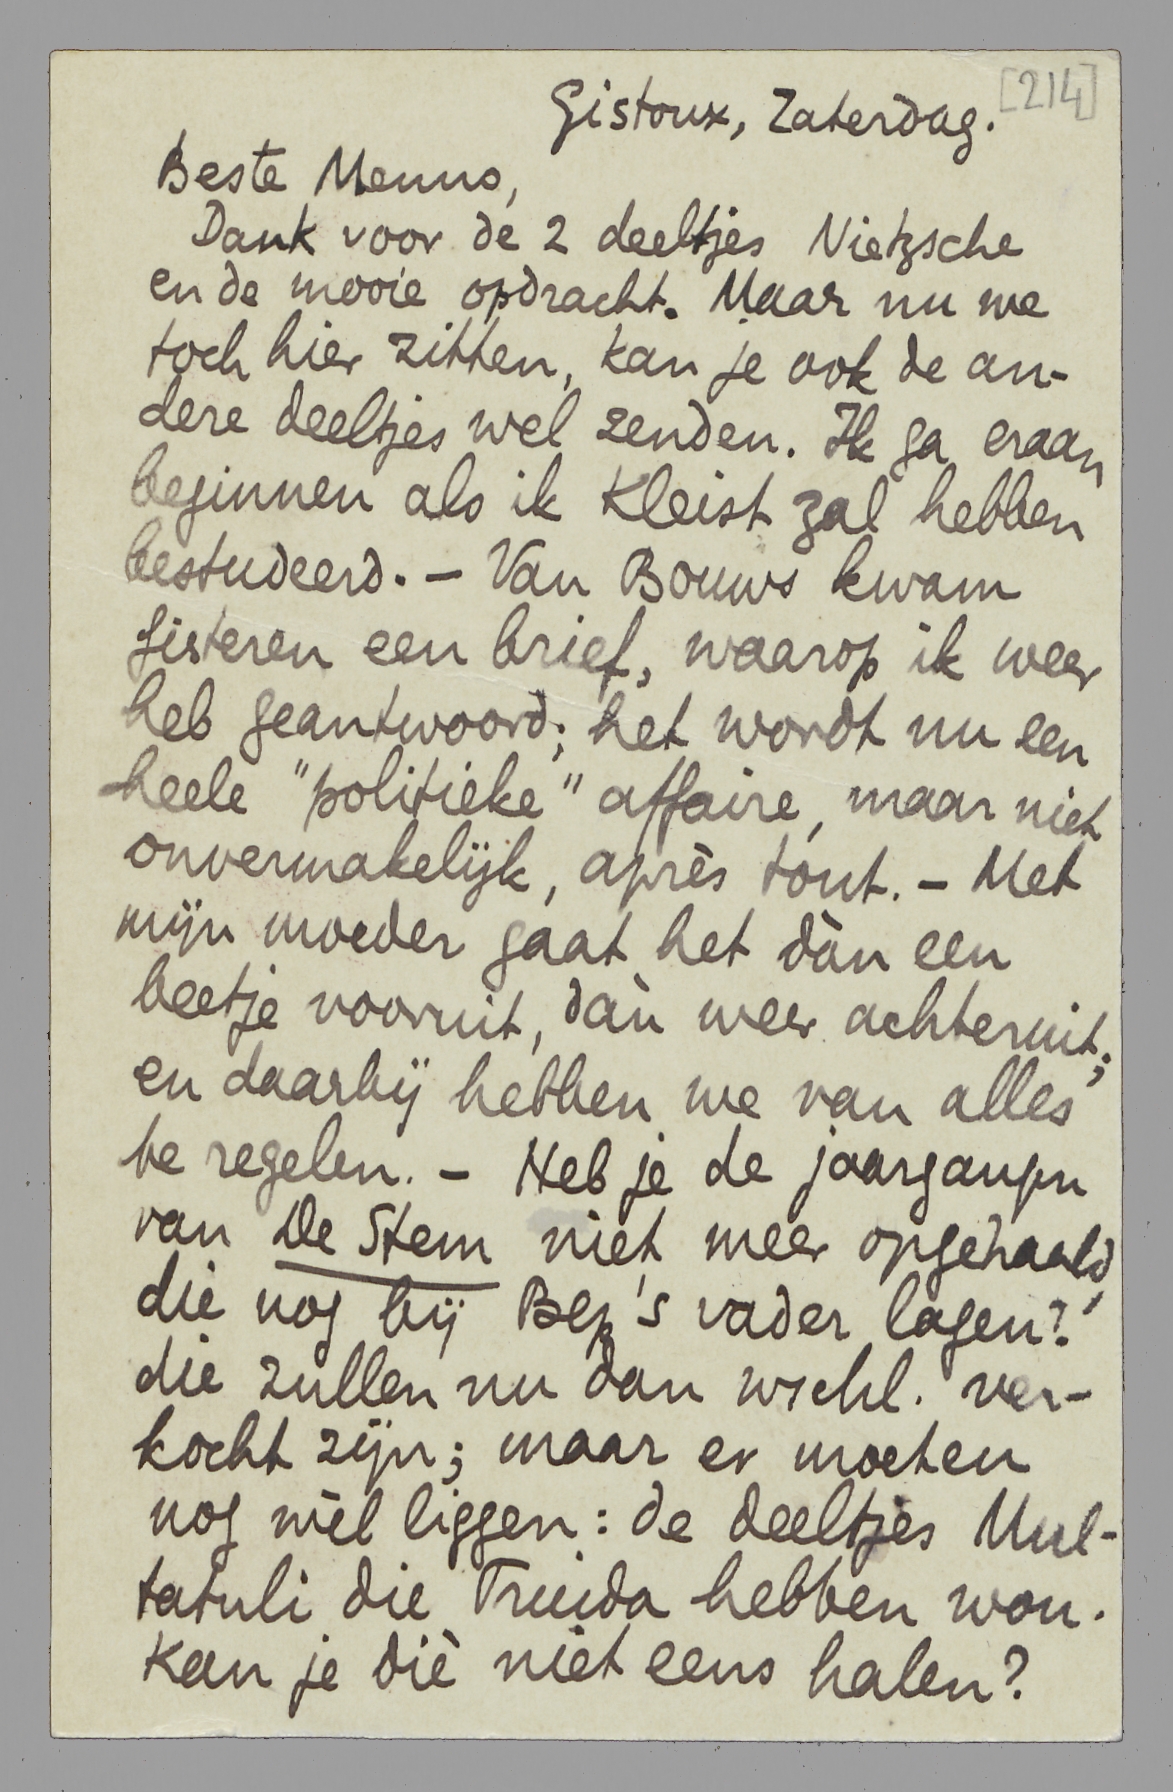 [214]
Gistoux, Zaterdag.
Beste Menno,
Dank voor de 2 deeltjes Nietzsche
en de mooie opdracht. Maar nu we
toch hier zitten, kan je ook de an-
dere deeltjes wel zenden. Ik ga eraan
beginnen als ik Kleist zal hebben
bestudeerd. – Van Bouws kwam
gisteren een brief, waarop ik weer
heb geantwoord; het wordt nu een
heele "politieke" affaire, maar niet
onvermakelijk, après tout. – Met
mijn moeder gaat het dàn een
beetje vooruit, dàn weer achteruit;
en daarbij hebben we van alles
te regelen. – Heb je de jaargangen
van De Stem niet meer opgehaald,
die nog bij Bep's vader lagen?
die zullen nu dan wschl. ver-
kocht zijn; maar er moeten
nog wèl liggen: de deeltjes Mul-
tatuli die Truida hebben wou.
Kan je diè niet eens halen?